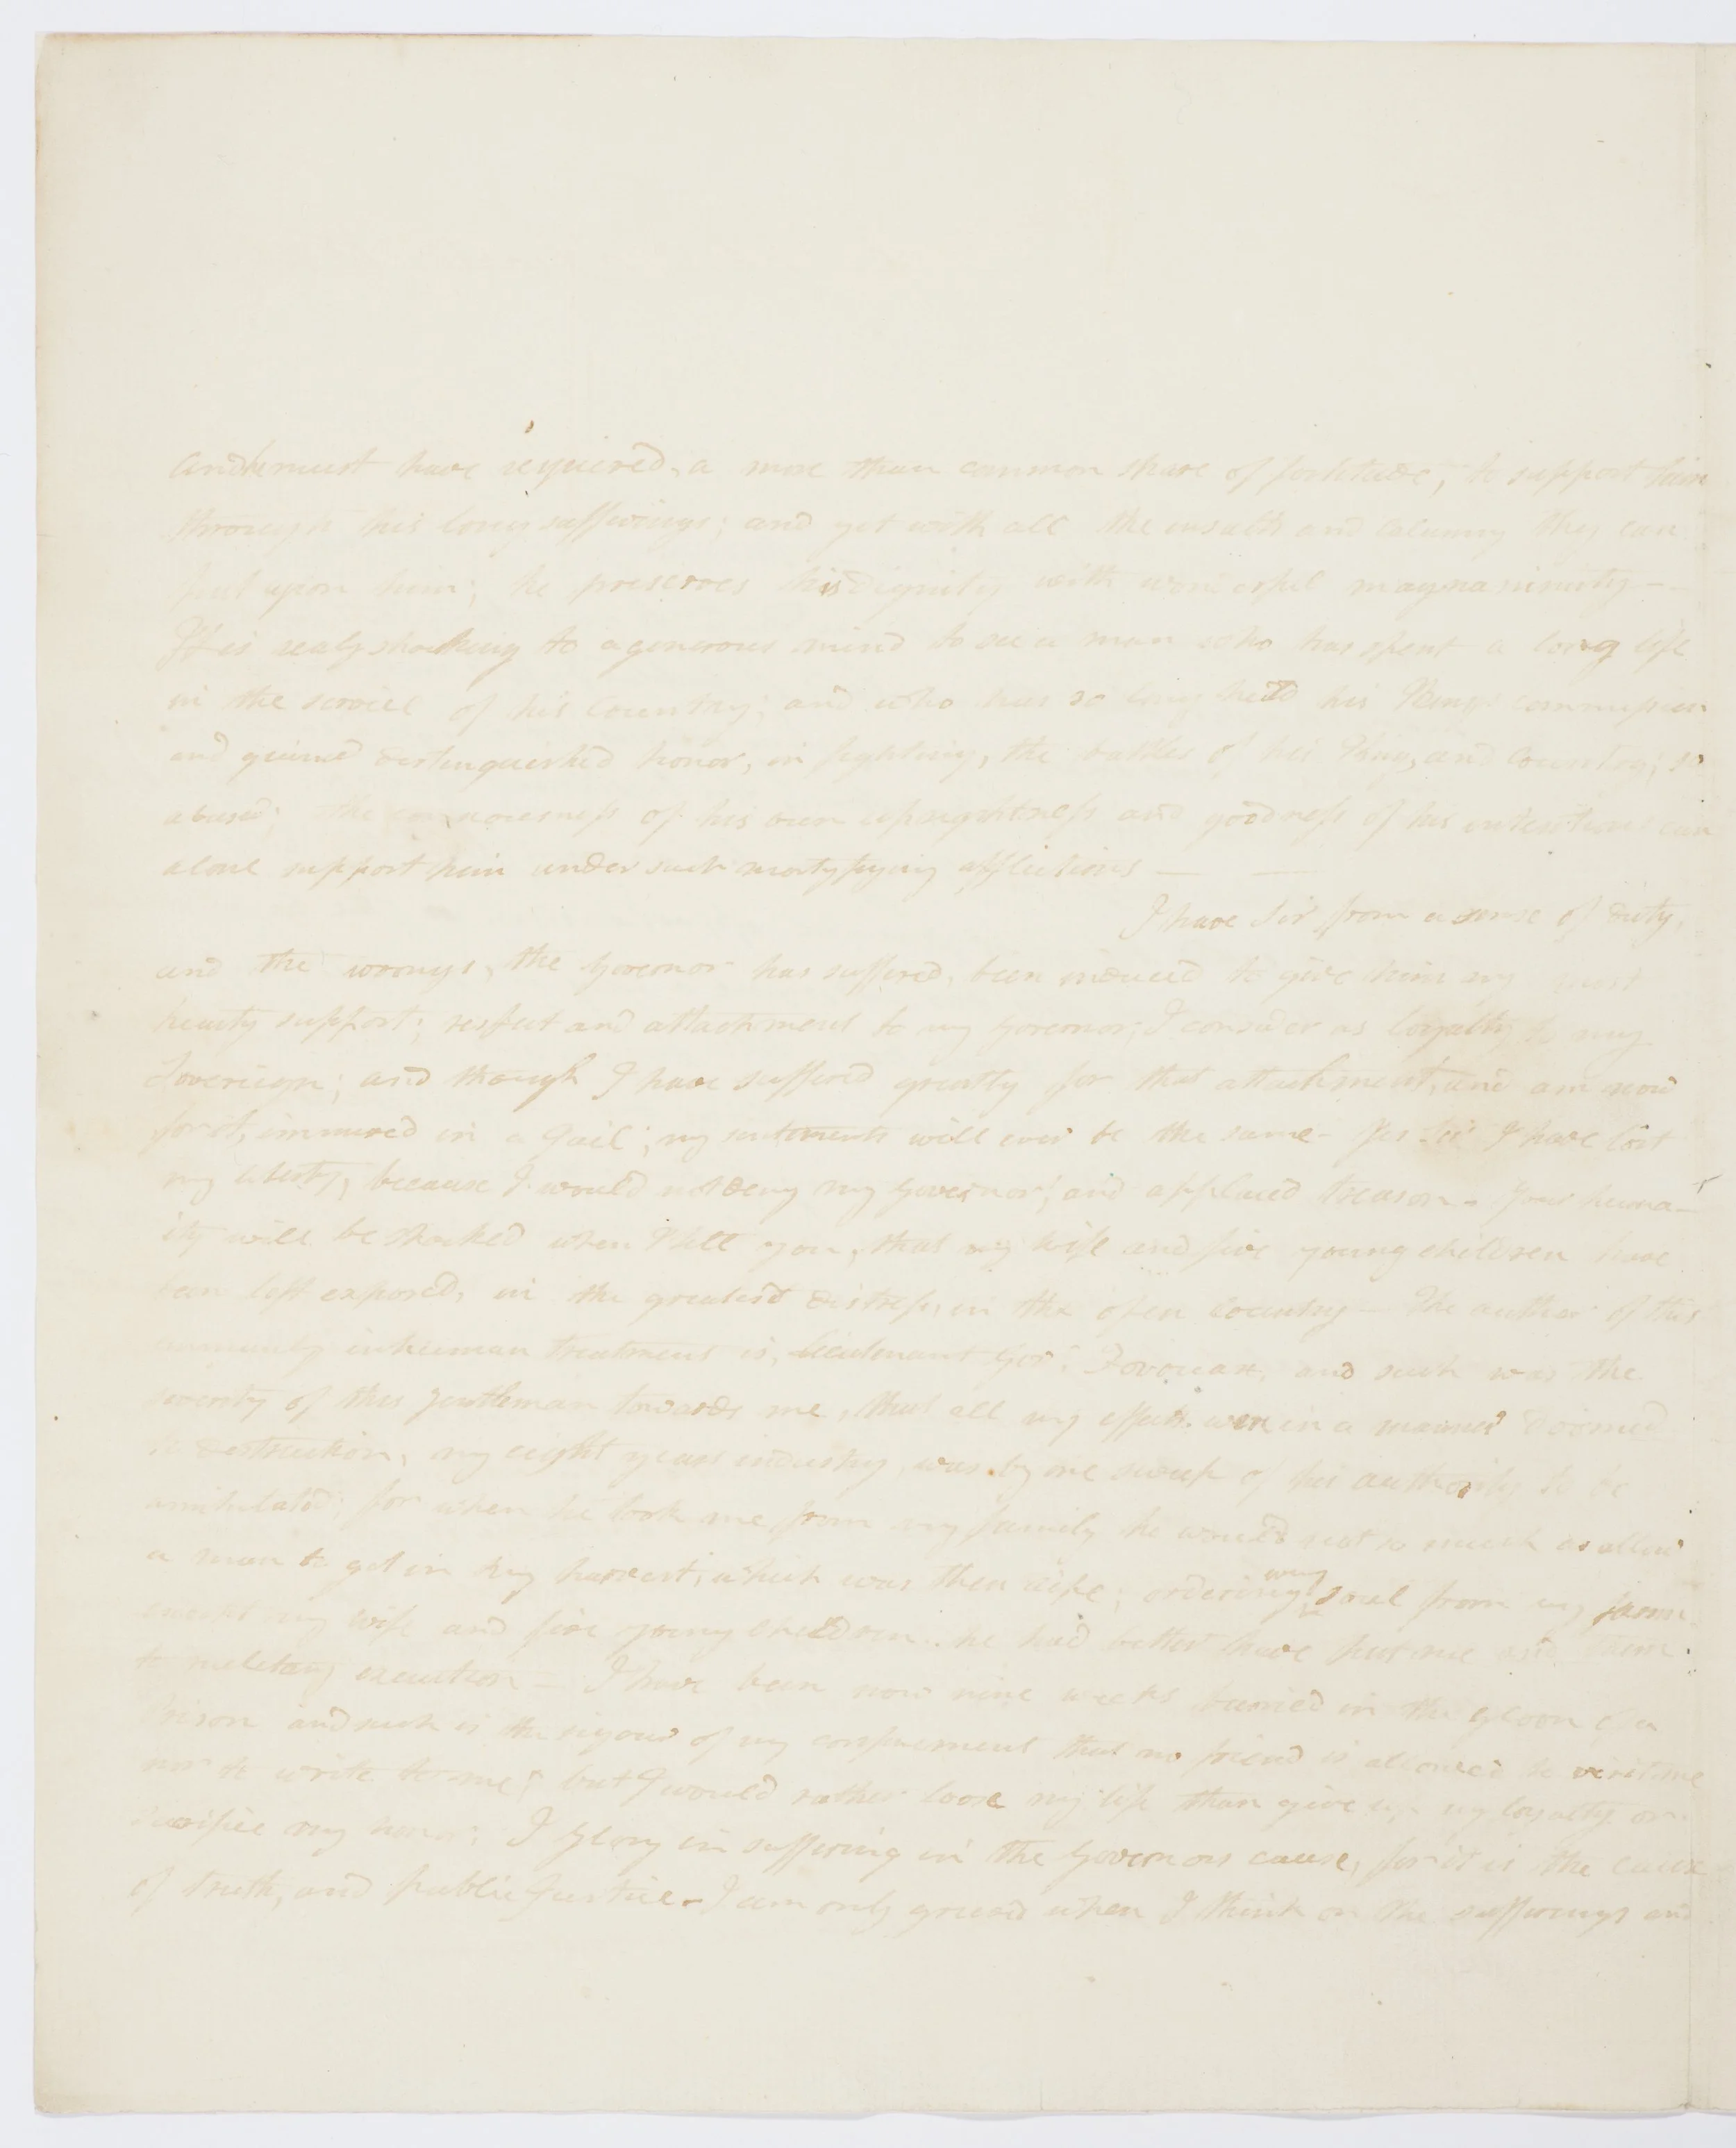 and he must have required, a more than common share of fortitude, to support him
through his long sufferings; and yet with all the insults and calumny they can
put upon him; he preserves his dignity with wonderful magnanimity —
It is realy shocking to a generous mind to see a man who has spent a long life
in the service of his Country; and who has so long held his Kings commission
and gained distinguished honor, in fighting, the battles of his King, and Country; so
abused; the consciousness of his own uprightness and goodness of his intentions can
alone support him under such mortyfying afflictions — —
I have Sir from a sense of duty,
and the wrongs, the Governor has suffered, been induced to give him my most
hearty support; respect and attachment to my Governor, I consider as loyalty to my
Sovereign; and though I have suffered greatly for that attachment, and am now
for it, immured in a Gail; my sentiments will ever be the same - Yes Sir I have lost
my liberty, because I would not deny my Governor, and applaud treason - Your huma-
ity will be shocked when I tell you, that my wife and five young children have
been left exposed, in the greatest distress, in the open Country — The author of this
inhuman treatment is, Lieutenant Govr. Foveaux, and such was the
severity of this Gentleman towards me, that all my effects were in a manner doomed
to destruction, my eight years industry, was by one sweep of his authority to be
annihilated; for when he took me from my family he would not so much as allow
a man to get in my harvest, which was then ripe; ordering every soul from my farm
except my wife and five young children.. he had better have put me and them
to military execution - I have been now nine weeks burried in the gloon of a
Prison and such is the rigour of my confinement that no friend is allowed to visit me
nor to write to me; but I would rather loose my life than give up my loyalty or
sacrifice my honor; I glory in suffering in the Governors cause, for it is the cause
of truth, and public Justice - I am only grieved when I think on the sufferings and